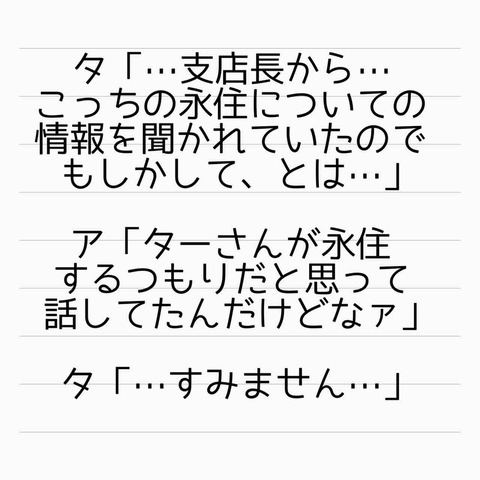 タ「…支店長から…
こっちの永住についての
情報を聞かれていたので
もしかして、とは…」
ア「ターさんが永住
するつもりだと思って
話してたんだけどなァ」
タ「…すみません…」